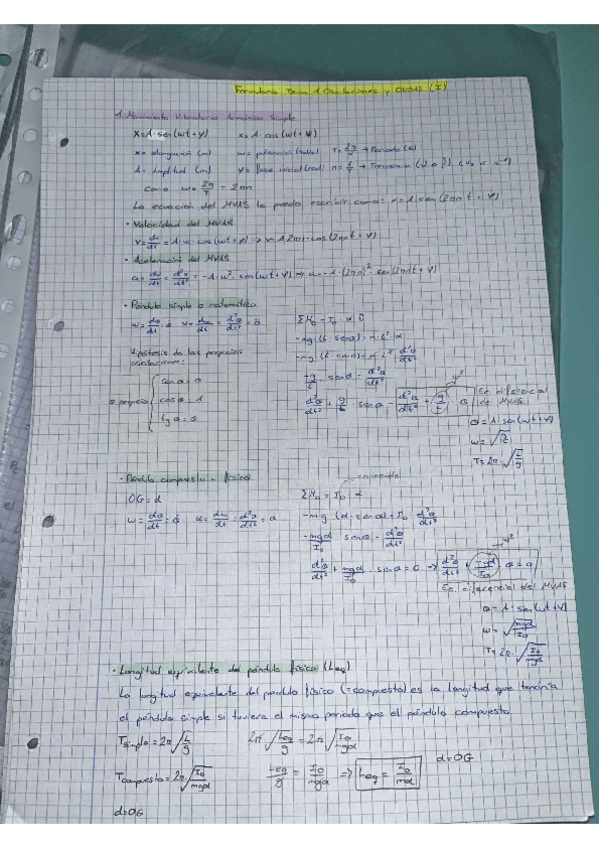 Formulario Tema 1 Oscilaciones y ondas (I)
1. Movimiento Vibratorio Armónico Simple
x = A·sen(wt+φ)    x = A·cos(wt+φ)
x = elongación (m)    w = pulsación    T = 2π/w → Periodo (s)
A = Amplitud (m)    φ = fase inicial (rad)    n = 1/T → Frecuencia
Como w = 2π/T = 2πn
La ecuación del MVAS la puedo escribir como: x = A·sen(2πnt + φ)
· Velocidad del MVAS
v = dx/dt = A·w·cos(wt+φ) → v = A2πn·cos(2πnt + φ)
· Aceleración del MVAS
a = dv/dt = d²x/dt² = -A·w²·sen(wt+φ) → a = -A·(2πn)²·sen(2πnt+φ)
· Péndulo simple o matemático
Hipótesis de las pequeñas
oscilaciones:
θ pequeño
senθ = θ
cosθ = 1
tgθ = θ
ΣM₀ = I₀ α
Ec diferencial
de MVAS
θ = A·sen(wt+φ)
T = 2π·√(L/g)
· Péndulo compuesto o físico
OG = d
ΣM₀ = I₀ α
d²θ/dt² + mgd/I₀ · senθ = 0
Ec diferencial del MVAS
θ = A·sen(wt+φ)
w = √(mgd/I₀)
T = 2π·√(I₀/mgd)
· Longitud equivalente del péndulo físico (Leq)
La longitud equivalente del péndulo físico (=compuesto) es la longitud que tendría
el péndulo simple si tuviera el mismo periodo que el péndulo compuesto
Tsimple = 2π√(L/g)    2π√(Leq/g) = 2π√(I₀/mgd)
Tcompuesto = 2π√(I₀/mgd)    Leq/g = I₀/mgd ⇒ Leq = I₀/md    d=OG
d=OG